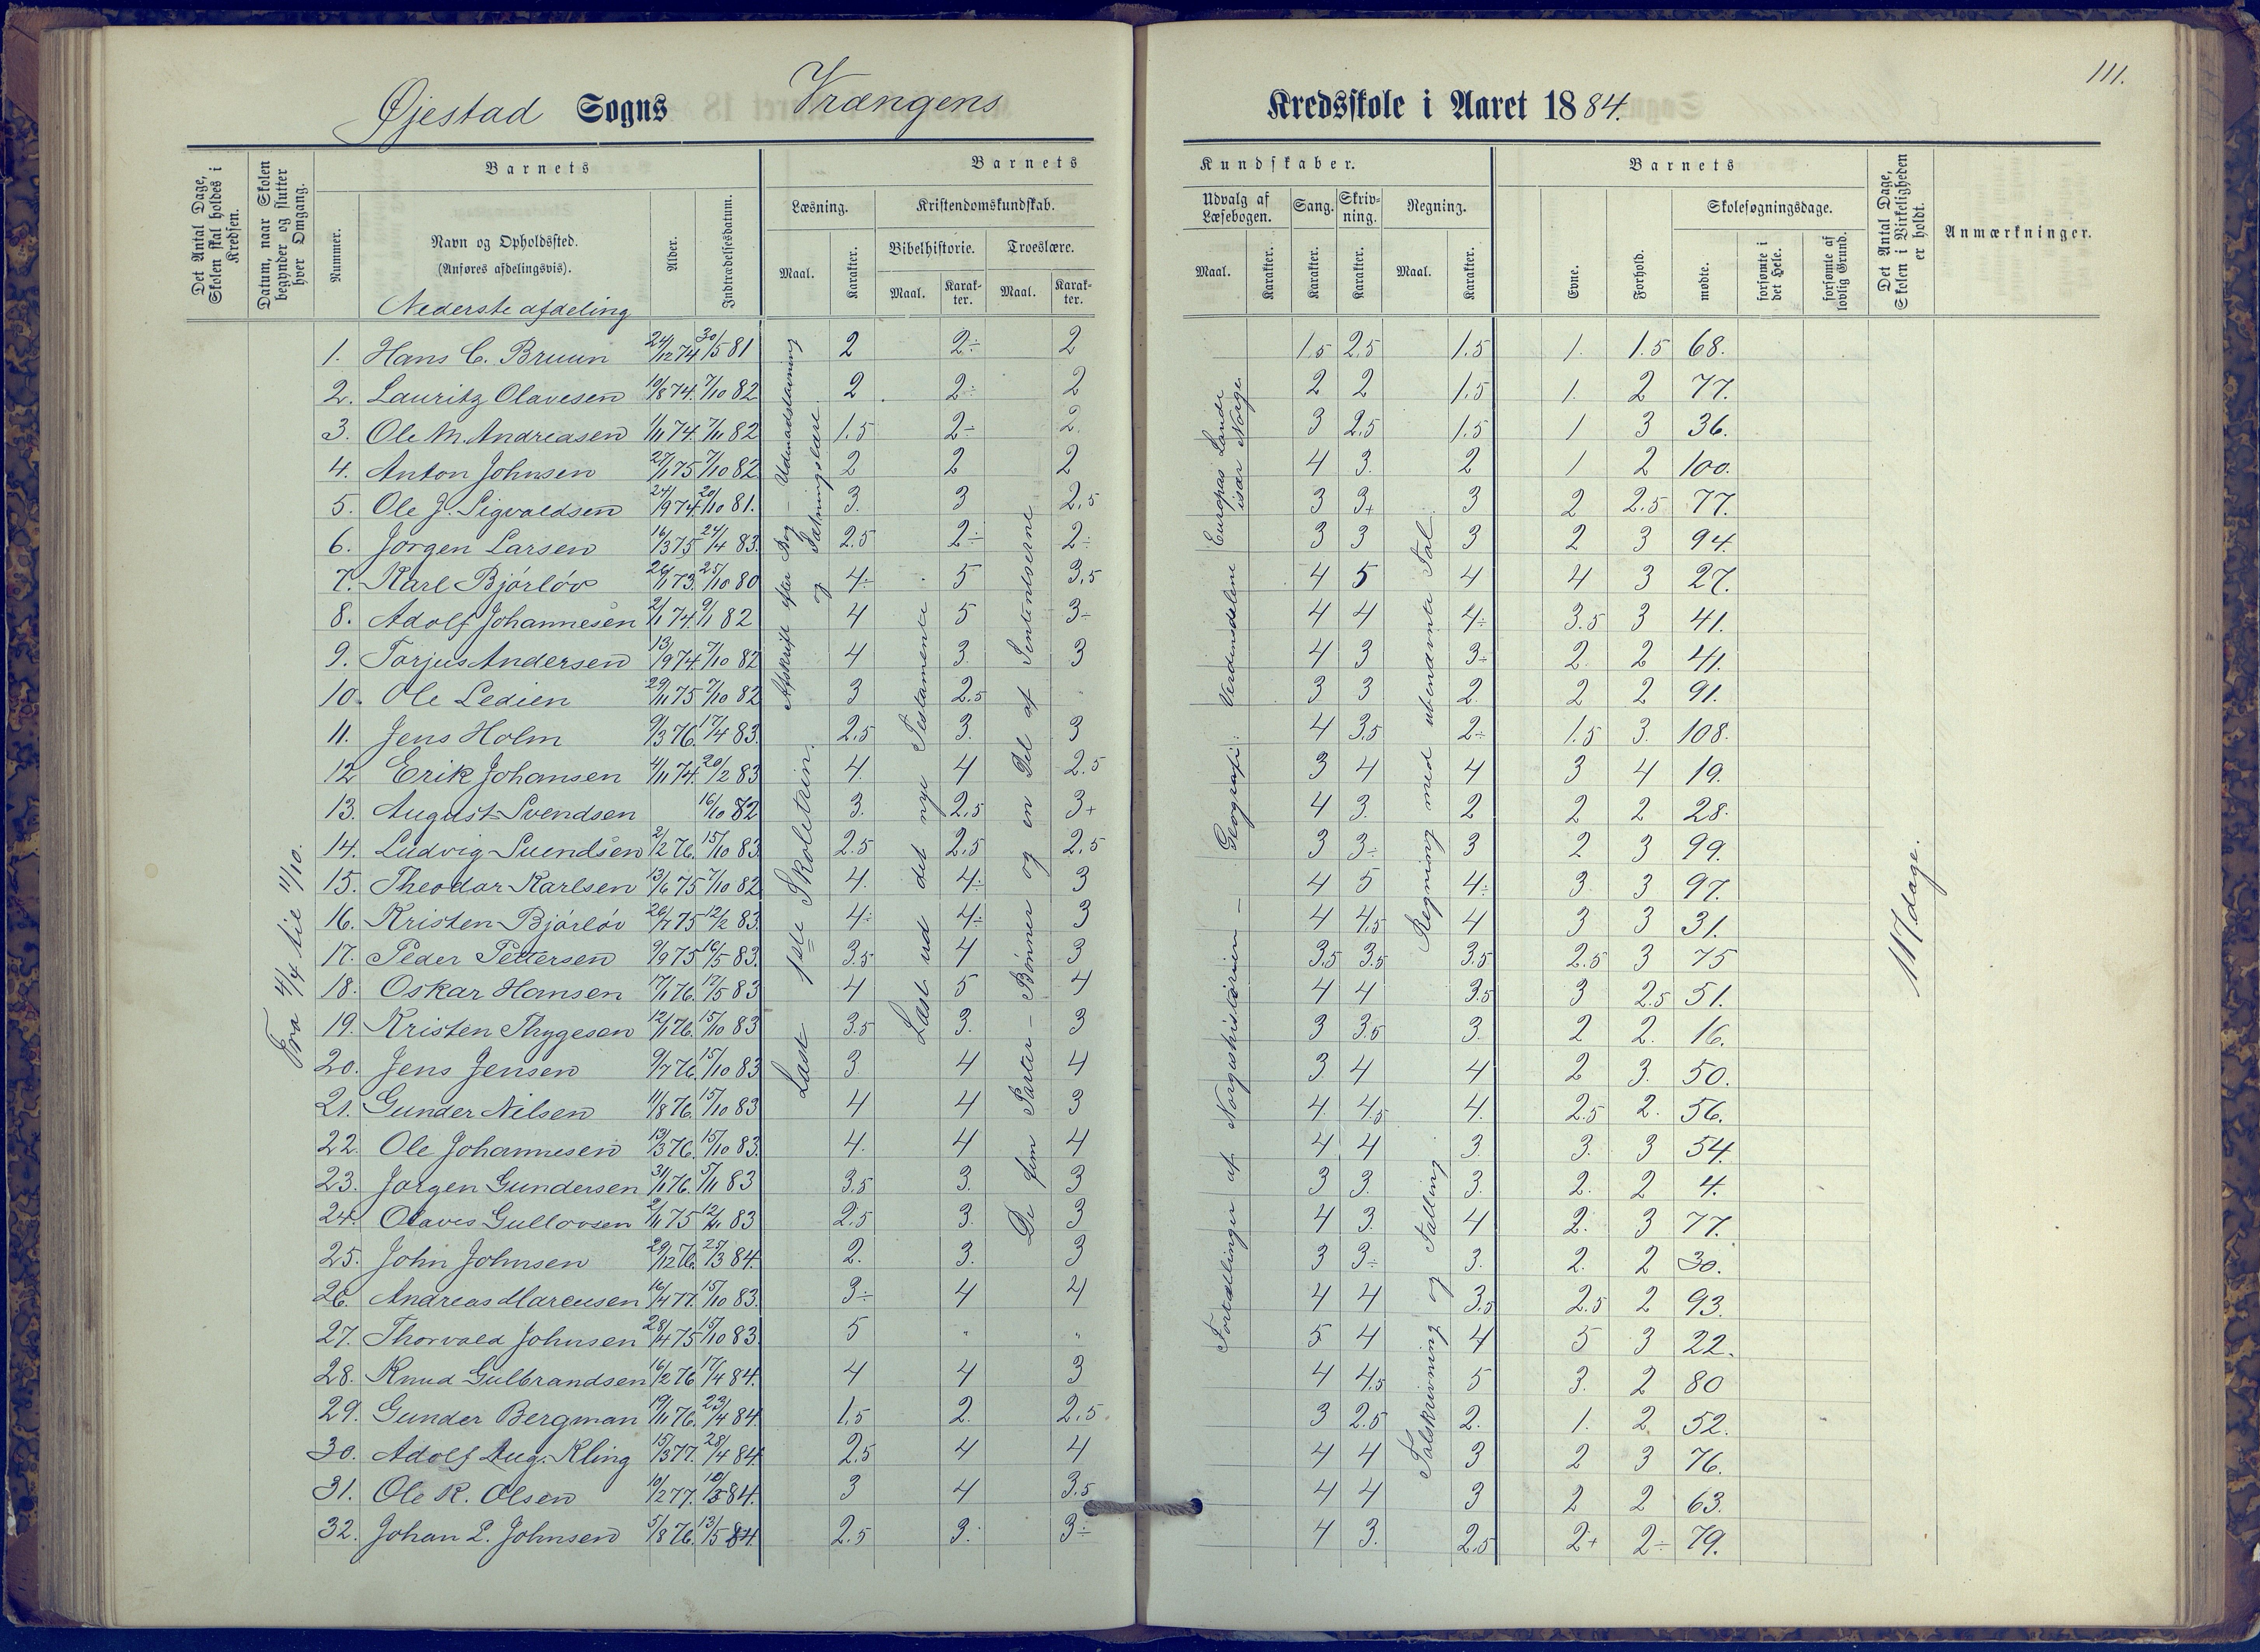 111.
Øjestad Sogns Vrængens Kredsskole i Aaret 1884.
Det Antal Dage, Skolen skal holdes i Kredsen.
Datum, naar Skolen begynder og slutter hver Omgang.
Barnets
Nummer.
Navn og Opholdssted.
(Anføres afdelingsvis).
Nederste afdeling
Alder.
Indtrædelsesdatum.
Barnets Kundskaber.
Læsning.
Maal.
Karakter.
Kristendomskundskab.
Bibelhistorie.
Maal.
Karakter.
Troeslære.
Maal.
Karakter.
Udvalg af Læsebogen.
Maal.
Karakter.
Sang.
Karakter.
Skrivning.
Karakter.
Regning.
Maal.
Karakter.
Barnets
Evne.
Forhold.
Skolesøgningsdage.
mødte.
forsømte i det Hele.
forsømte af lovlig Grund.
Det Antal Dage, Skolen i Virkeligheden er holdt.
Anmærkninger.
Fra 4/4 til 11/10.
Læst 1ste Skoletrin.
Afskrift efter Bog – Udenadskrivning og Sætningslære
Læst ud det nye Testamente
De fem Parter – Bønner og en Del af Sententserne
Fortællinger af Norgeshistorien – Geografi: Verdensdelene Europas Lande især Norge.
Regning med ubenævnte Tal.
Talskrivning og Tælling
117 dage.
1. Hans C. Bruun 24/12 74 30/5 81 2 2÷ 2 1.5 2.5 1.5 1. 1.5 68.
2. Lauritz Olavesen 10/8 74. 7/10 82 2 2÷ 2 2 2 1.5 1. 2 77.
3. Ole M. Andreasen 1/11 74. 7/11 82 1.5 2÷ 2. 3 2.5 1.5 1 3 36.
4. Anton Johnsen 27/1 75 7/10 82 2 2 2 4 3. 2 1 2 100.
5. Ole J. Sigvaldsen 24/9 74. 20/10 81. 3. 3 2.5 3 3+ 3 2 2.5 77.
6. Jörgen Larsen 16/3 75 24/4 83. 2.5 2÷ 2÷ 3 3 3 2 3 94.
7. Karl Bjórlóv 26/1 73. 25/10 80 4÷ 5 3,5 4 5 4 4 3 27.
8. Adolf Johannesen 2/1 74. 9/1 82 4 5 3÷ 4 4 4÷ 3.5 3 41.
9. Torjus Andersen 13/9 74 7/10 82 4 3. 3 4 3 3÷ 2. 2 41.
10. Ole Ledien 29/11 75 7/10 82 3 2.5 3 3 2. 2 2 91.
11. Jens Holm 9/3 76. 17/4 83. 2.5 3. 3 4 3.5 2÷ 1.5 3. 108.
12 Erik Johansen 4/11 74. 20/2 83 4. 4 2.5 3 4 4 3 4 19.
13. August Svendsen 16/10 82 3. 2.5 3+ 4 3. 2 2 2 28.
14. Ludvig Suendsen 2/2 76. 15/10 83. 2.5 2.5 2.5 3 3÷ 3 2 3 99.
15. Theodor Karlsen 13/6 75 7/10 82 4. 4÷ 3 4 5 4÷ 3 3 97.
16. Kristen Bjórlóv 26/7 75 12/2 83. 4÷ 4÷ 3 4 4.5 4 3 3 31.
17. Peder Pettersen 9/9 75 16/5 83. 3.5 4 3 3.5 3.5 3.5 2.5 3 75
18. Oskar Hansen 17/1 76. 17/5 83 4 5 4 4 4 3.5 3 2.5 51.
19. Kristen Thygesen 12/1 76. 15/10 83 3.5 3. 3 3 3.5 3. 2 2. 16.
20. Jens Jensen 9/7 76. 15/10 83 3 4 4 3 4 4 2 3. 50.
21. Gunder Nilsen 11/8 76. 15/10 83 4 4 3 4 4.5 4. 2.5 2. 56.
22. Ole Johannesen 13/3 76. 15/10 83. 4. 4 4 4 4 3. 3. 3 54.
23. Jørgen Gundersen 3/1 76. 5/11 83 3.5 3. 3 3 3. 3. 2. 2 4.
24. Olaves Gullovsen 2/11 75 12/11 83 2.5 3. 3 4 3. 4 2. 3 77.
25. John Johnsen 29/12 76. 25/3 84. 2. 3. 3 3 3÷ 3. 2. 2 30.
26. Andreas Marcusen 16/4 77. 15/10 83. 3÷ 4 4 4 4 3.5 2.5 2 93.
27. Thorvald Johnsen 28/4 75 15/10 83. 5 " " 5 4 4 5 3 22.
28. Knud Gulbrandsen 16/2 76 17/4 84. 4 4 3 4 4.5 5 3. 2 80
29. Gunder Bergman 19/11 76. 23/4 84. 1.5 2. 2.5. 3 2.5 2. 1. 2 52.
30. Adolf Aug. Kling 15/3 77. 28/4 84. 2.5 4 4 4 4 3 2 3 76.
31. Ole R. Olsen 10/2 77. 84. 3 4 3.5 4 4 3 2 2 63.
32. Johan L. Johnsen 5/8 76. 13/5 84. 2.5 3. 3÷ 4 3. 2.5 2+ 2÷ 79.